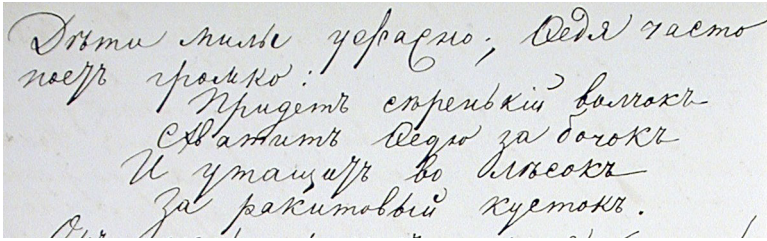 Дѣти милы ужасно; Ѳедя часто
поетъ громко:
Придетъ сѣренькій волчокъ
Схватитъ Ѳедю за бочокъ
И утащитъ во лѣсокъ
За ракитовый кустокъ.